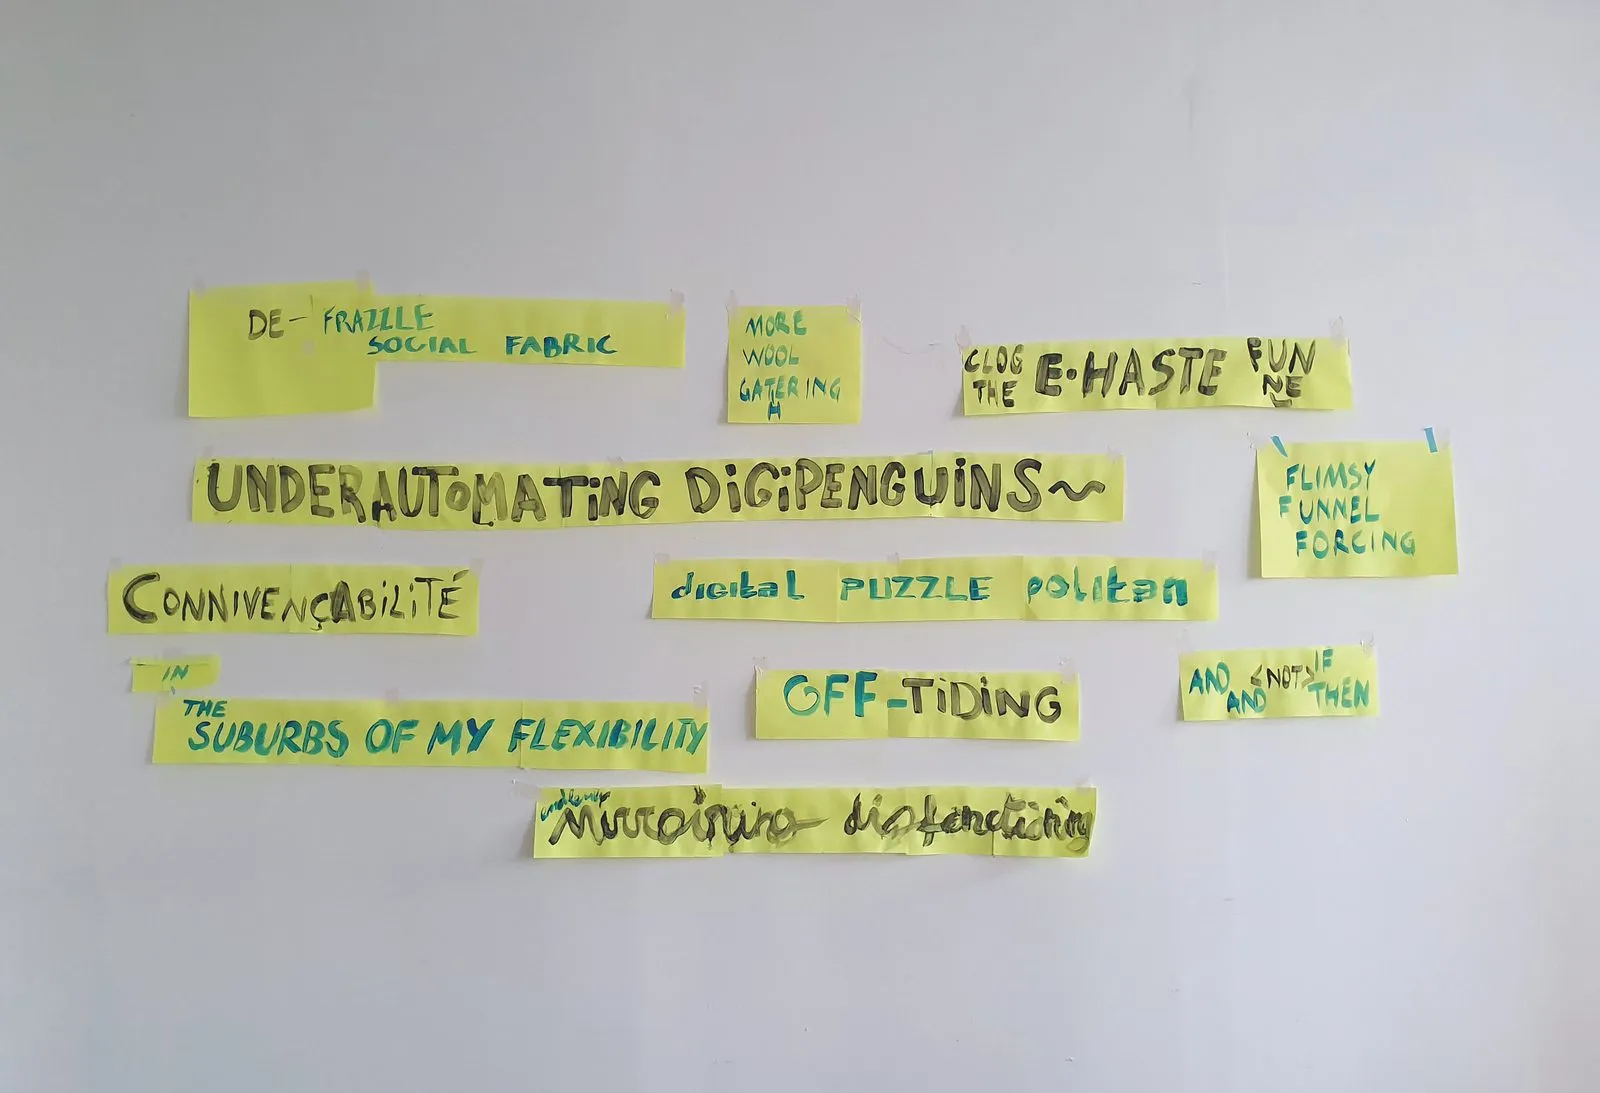 DE- FRAZZLE
SOCIAL FABRIC
MORE
WOOL
GATERING
H
CLOG
THE
E·HASTE
FUN
NE
L
UNDERAUTOMATING DIGIPENGUINS~
FLIMSY
FUNNEL
FORCING
CONNIVENÇABILITÉ
digital PUZZLE politan
IN
THE
SUBURBS OF MY FLEXIBILITY
OFF-TIDING
AND <NOT> IF
AND THEN
Mirroiring